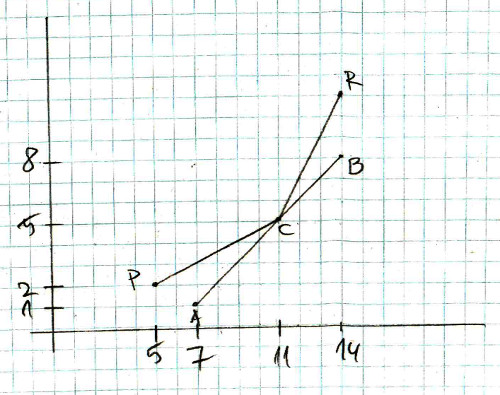 R
8
B
5
C
P
2
1
A
5 7 11 14